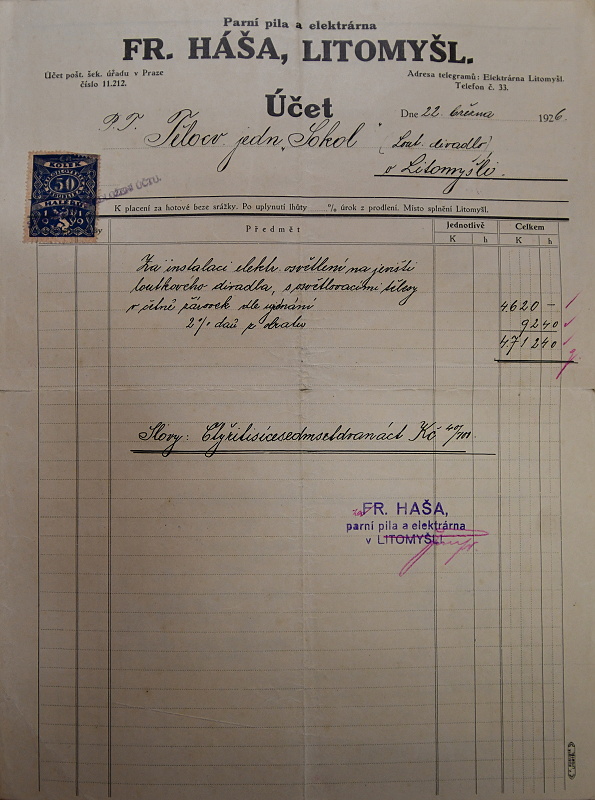 Parní pila a elektrárna
FR. HÁŠA, LITOMYŠL.
Účet pošt. šek. úřadu v Praze
číslo 11.212.
Adresa telegramů: Elektrárna Litomyšl.
Telefon č. 33.
Účet
Dne 22. března 1926.
P. T. Tělocv. jedn. „Sokol“ (Lout. divadlo)
v Litomyšli.
KOLEK
50
ÚČTU.
K placení za hotové beze srážky. Po uplynutí lhůty % úrok z prodlení. Místo splnění Litomyšl.
Předmět Jednotlivě Celkem
K h K h
Za instalaci elektr. osvětlení na jevišti
loutkového divadla, s osvětlovacími tělesy
v četně žárovek dle ujednání 4.620 –
2% daň z obratu 92 40
4.712 40
Slovy: Čtyřitisícesedmsetdvanáct Kč 40/100.
FR. HAŠA,
parní pila a elektrárna
v LITOMYŠLI